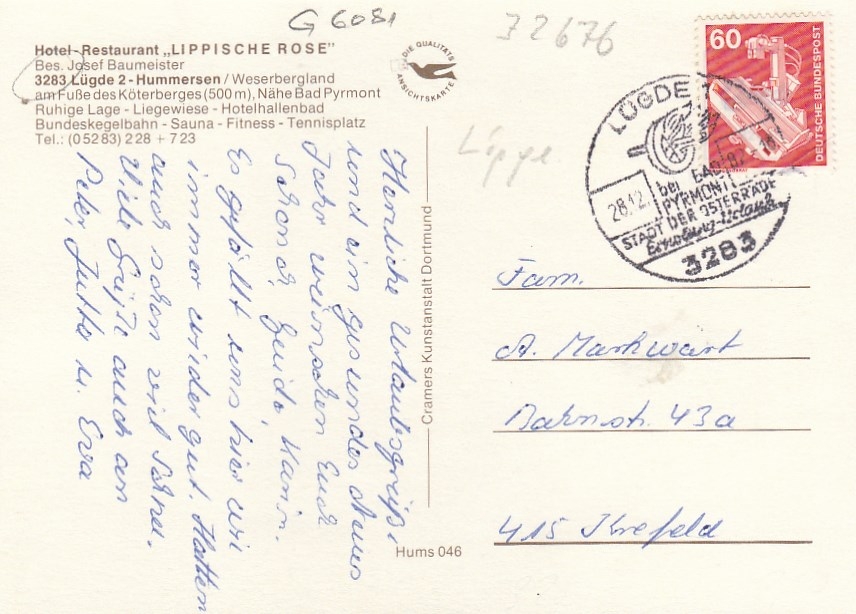 G 6081
72676
Hotel - Restaurant „LIPPISCHE ROSE"
Bes. Josef Baumeister
3283 Lügde 2 - Hummersen / Weserbergland
am Fuße des Köterberges (500 m), Nähe Bad Pyrmont
Ruhige Lage - Liegewiese - Hotelhallenbad
Bundeskegelbahn - Sauna - Fitness - Tennisplatz
Tel.: (0 52 83) 228 + 723
DIE QUALITÄTS
ANSICHTSKARTE
Lippe
60
DEUTSCHE BUNDESPOST
LÜGDE 1
28.12.
bei BAD
PYRMONT
STADT DER OSTERRÄDER
Erholung-Urlaub
3283
Herzliche Urlaubsgrüße
und ein gesundes Neues
Jahr wünschen Euch
Guido, Karin.
Es gefällt uns hier wie
immer wieder gut. Hatten
auch schon viel Schnee.
Viele Grüße auch an
Peter, Jutta u. Eva
Cramers Kunstanstalt Dortmund
Hums 046
Fam.
A. Markwart
Bahnstr. 43a
415 Krefeld